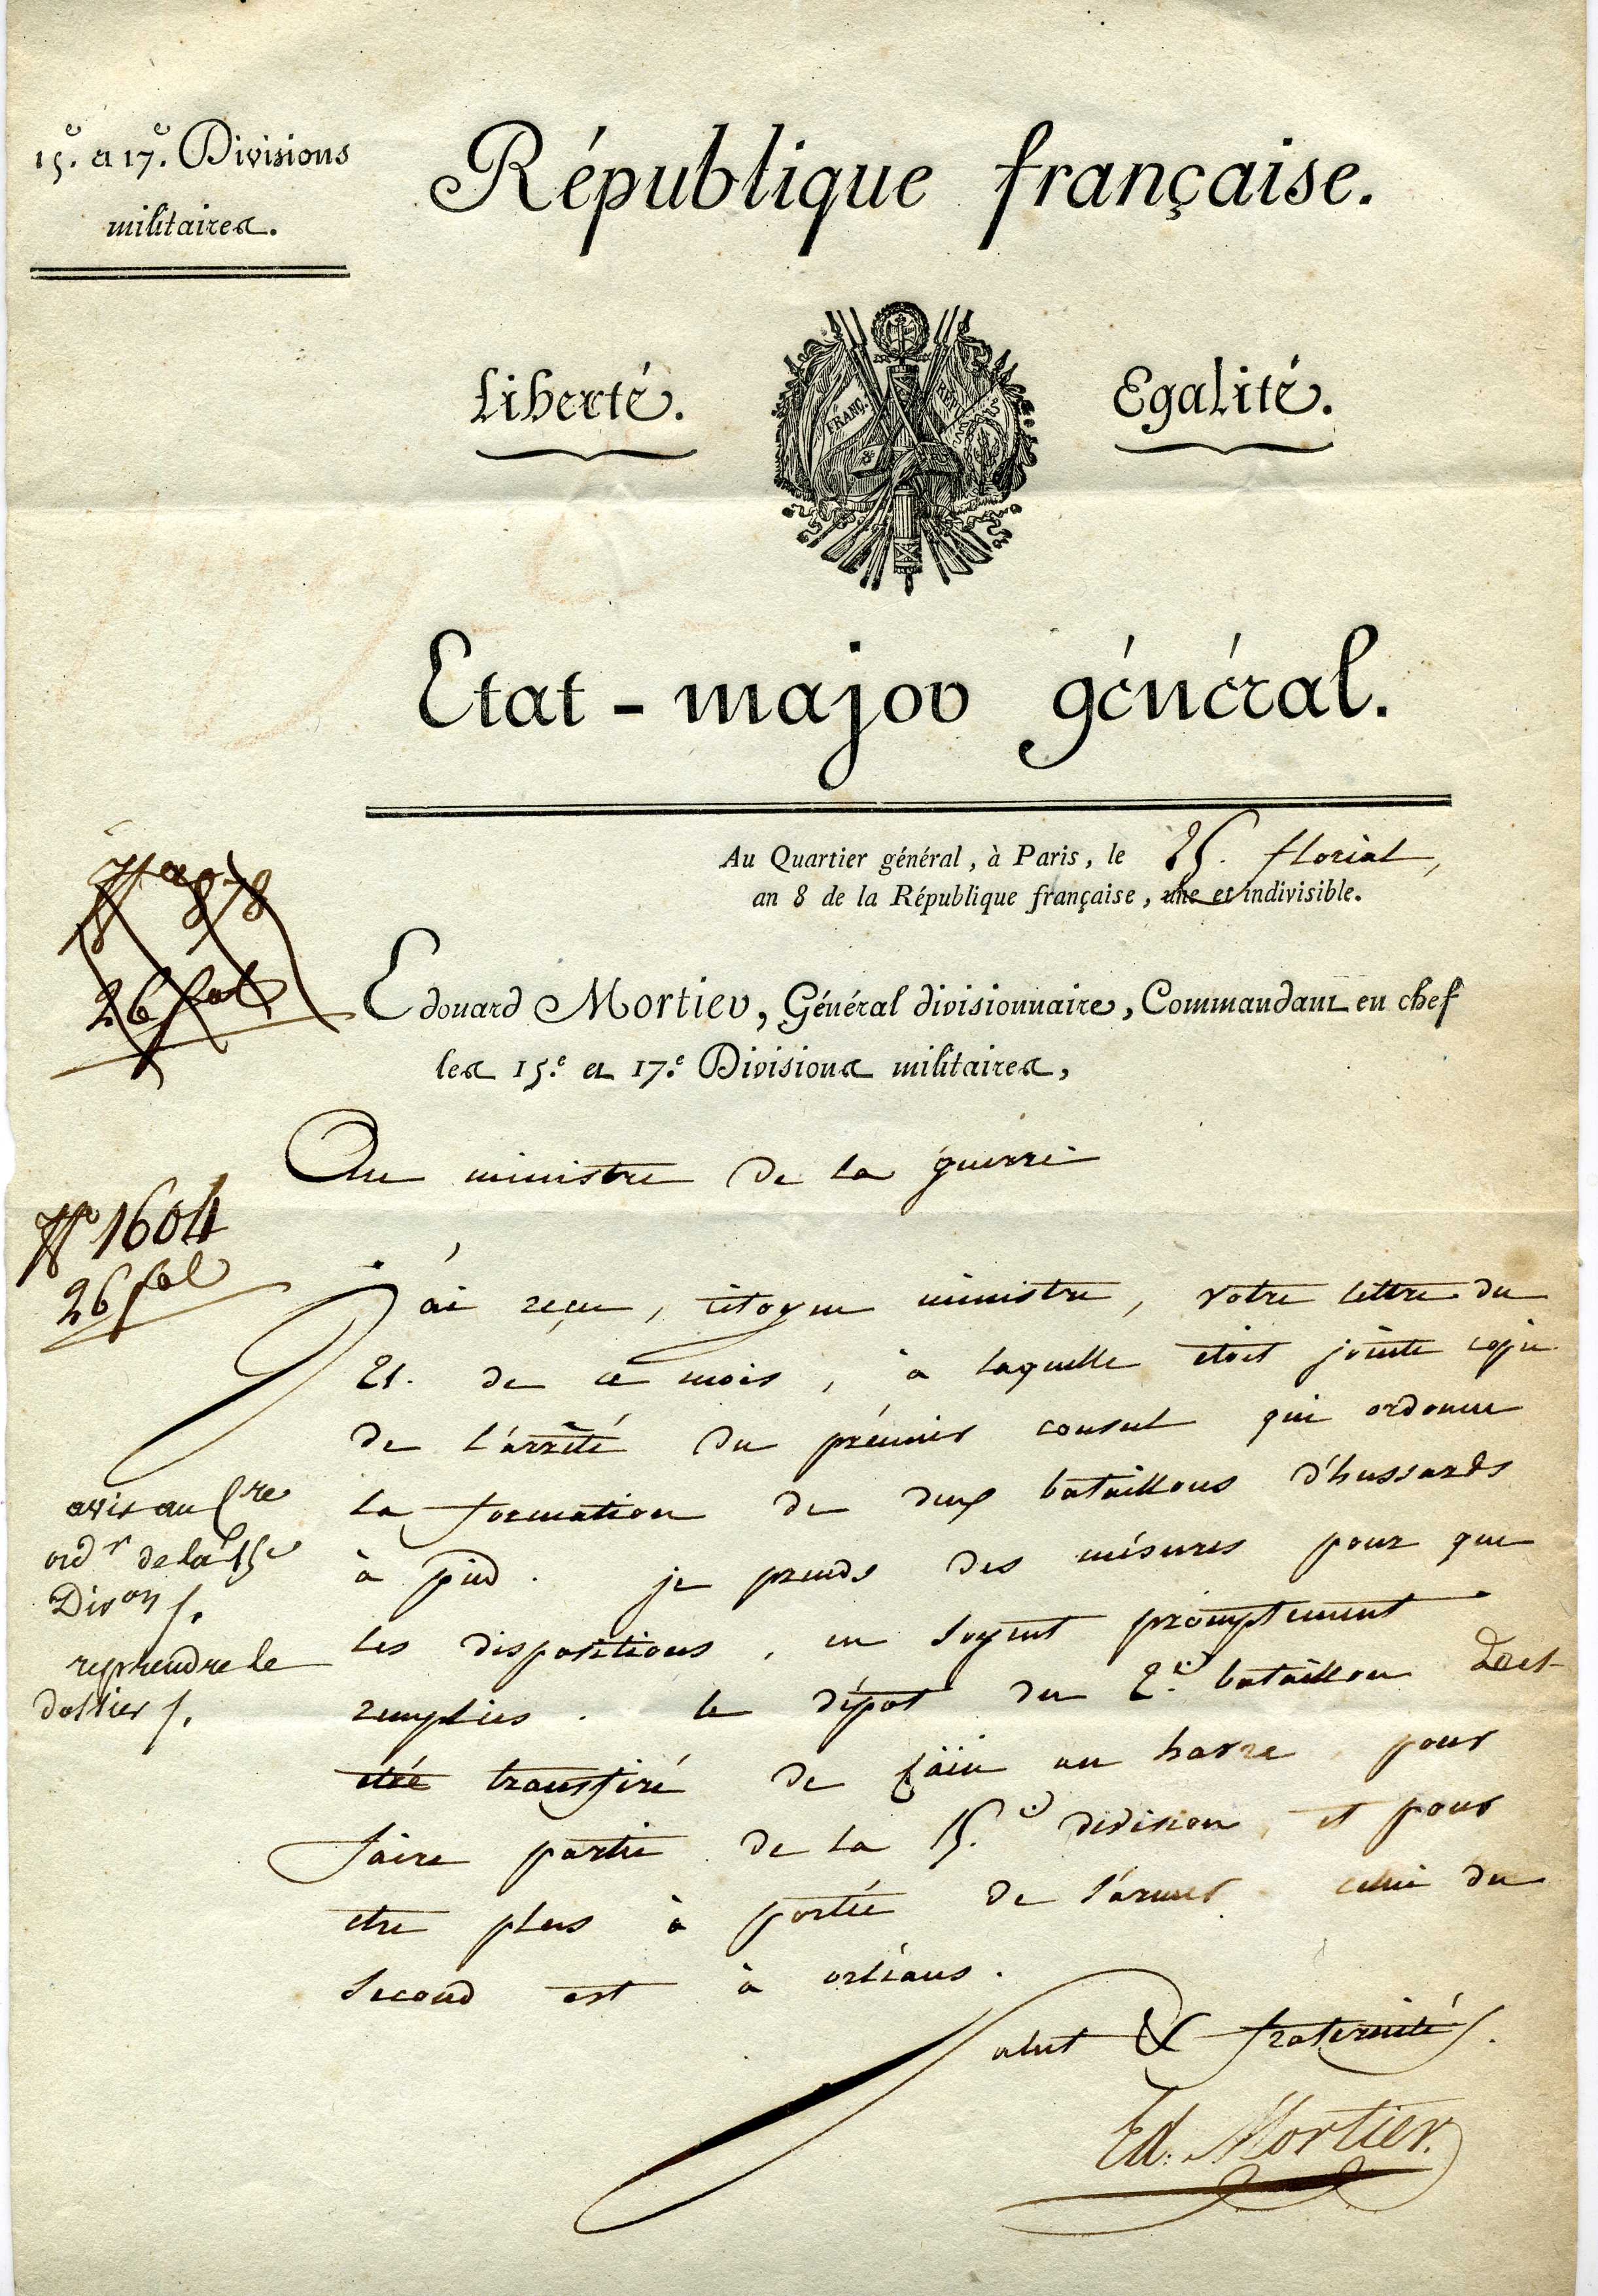 15.e et 17.e Divisions
militaires.
République française.
Liberté.
FRANÇ.
RÉP.
Egalité.
Etat-major général.
Au Quartier général, à Paris, le 25. floréal,
an 8 de la République française, une et indivisible.
26 fal
Edouard Mortier, Général divisionnaire, Commandant en chef
les 15.e et 17.e Divisions militaires,
Au ministre de la guerre
No 1604
26 fal
J'ai reçu, citoyen ministre, votre lettre du
21. de ce mois, à laquelle etoit jointe copie
de l'arrêté du prémier consul qui ordonne
la formation de deux bataillons d'hussards
à pied. je prends des mésures pour que
les dispositions, en soyent promptement
remplies. le dépot du 2.e bataillon
transféré de au havre pour
faire partie de la 15.e division, et pour
etre plus à portée de l'armée celui du
second est à orléans.
avis au Cre
ordr de la 15e
Divon /.
reprendre le
dossier /.
Salut & fraternité/.
Ed. Mortier.